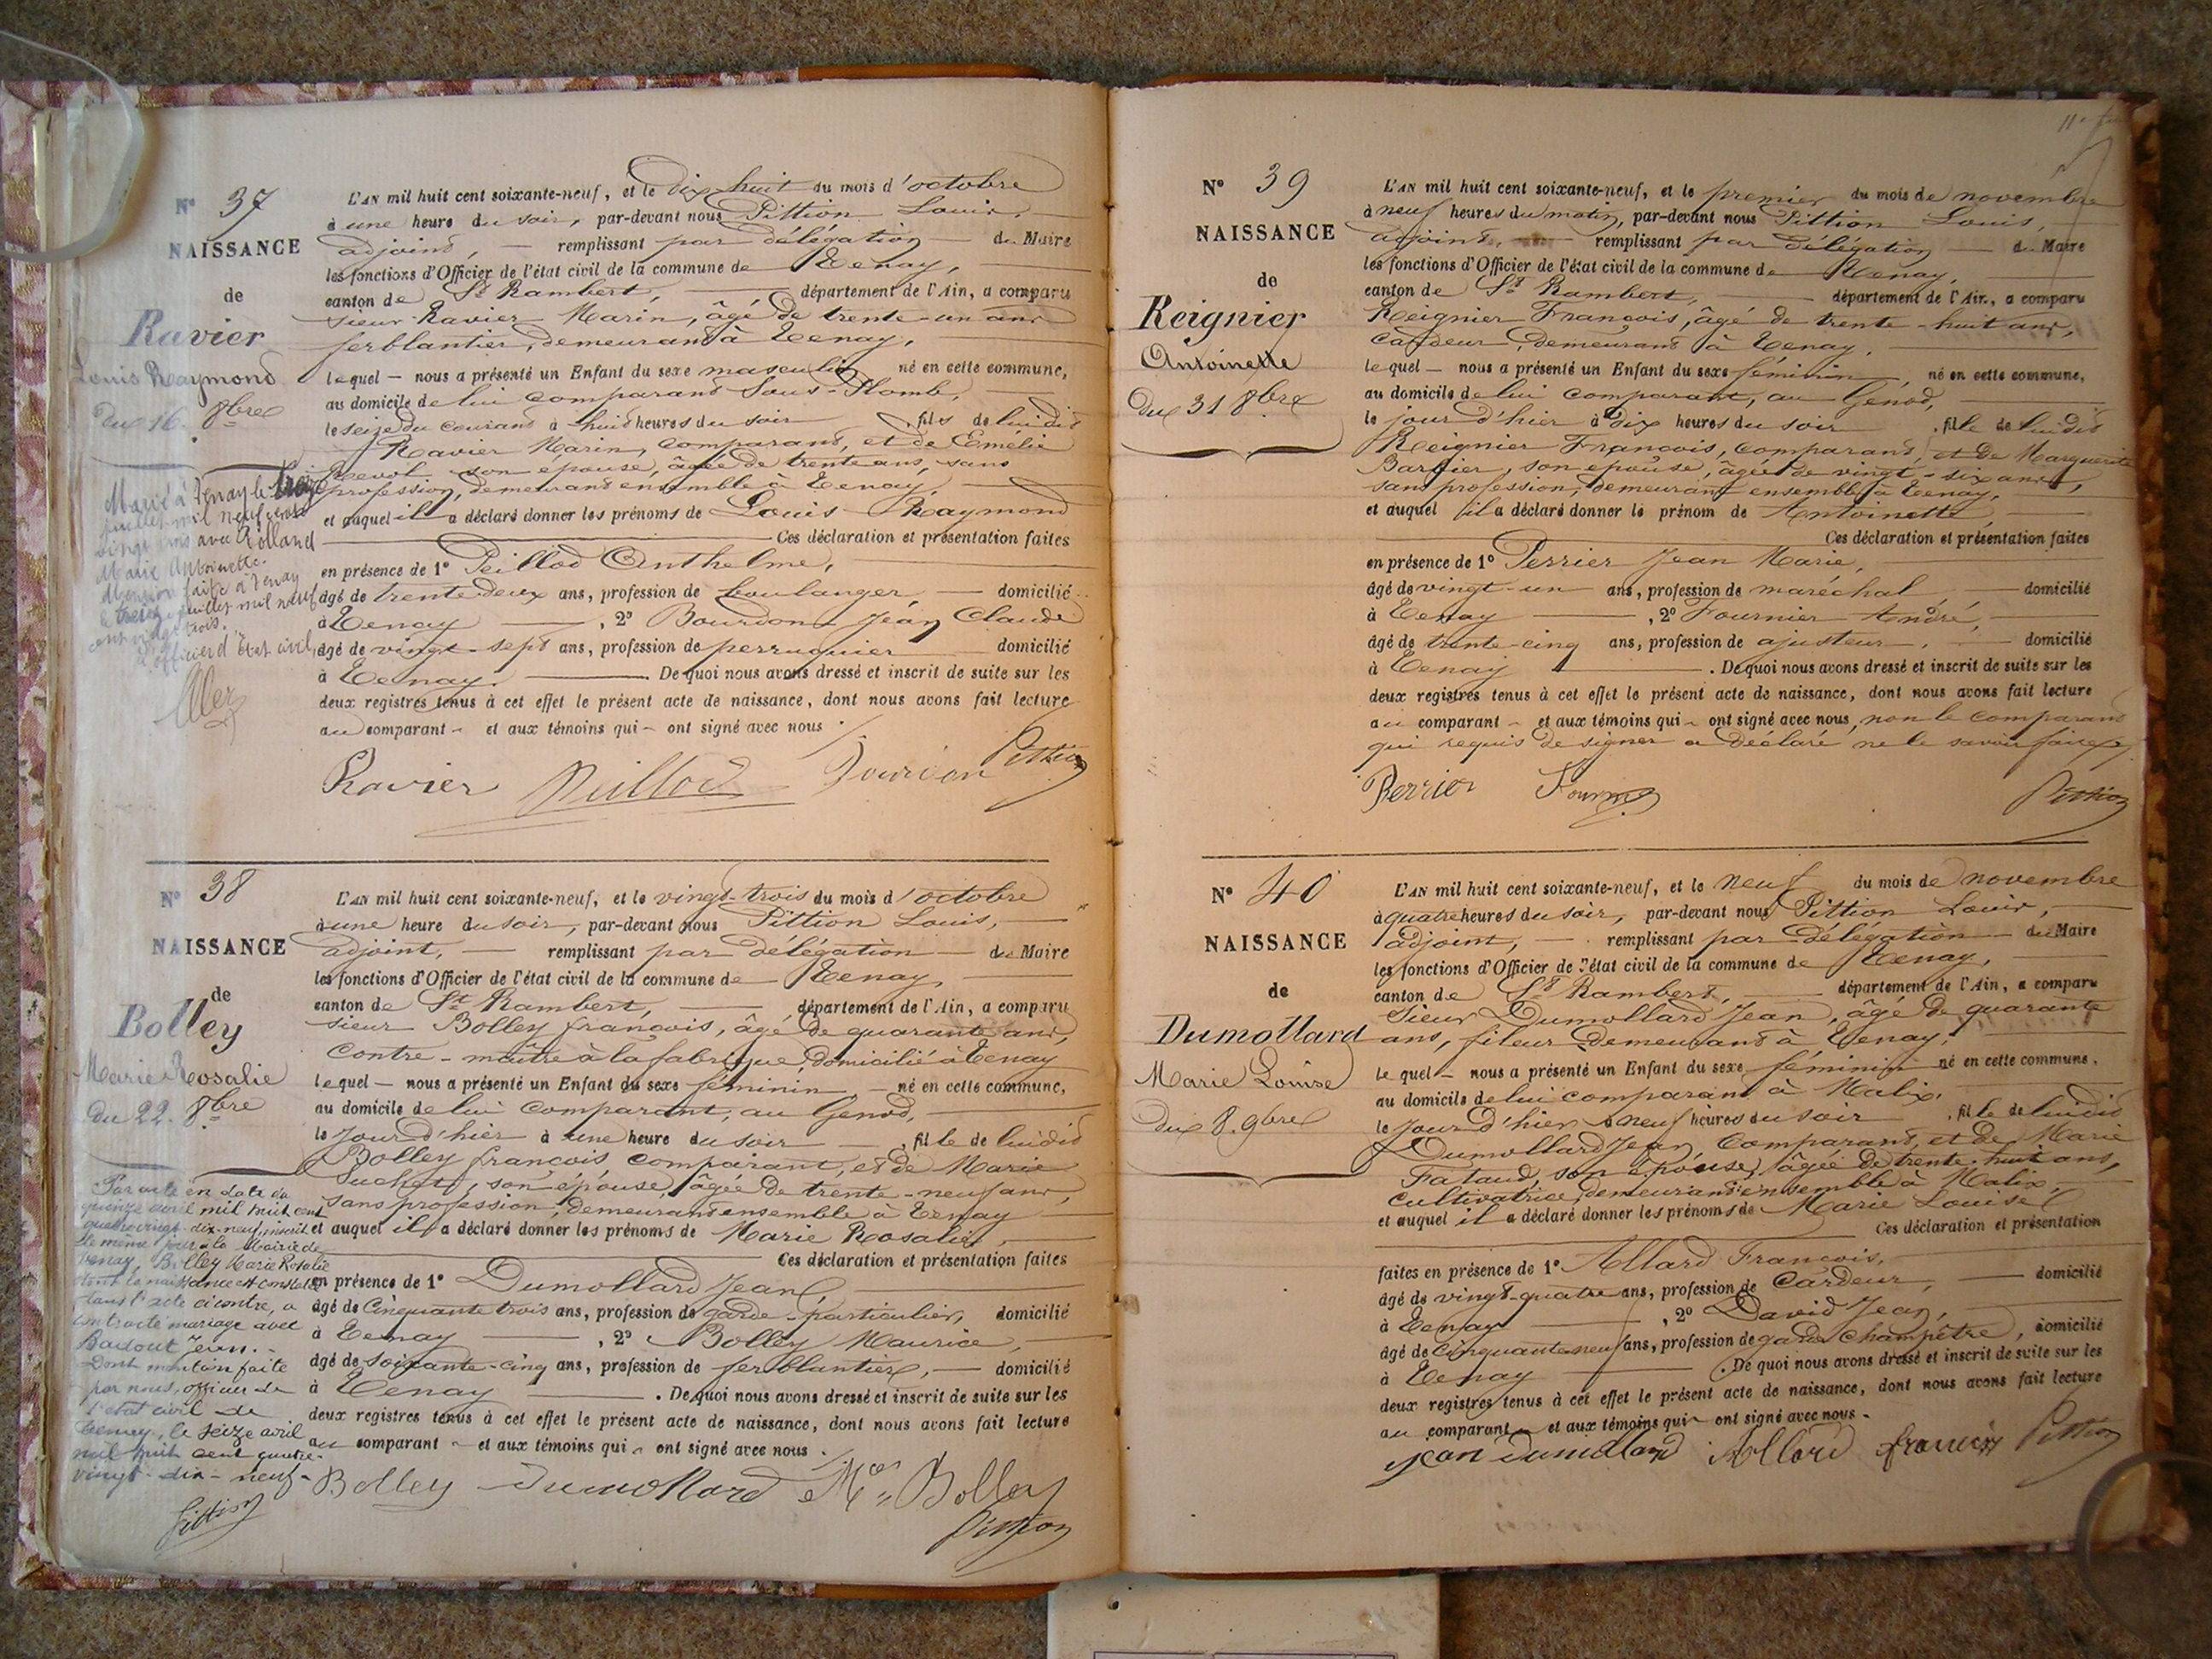 N° 37
NAISSANCE
de
Ravier
Louis Raymond
du 16. 8bre
Marié à Tenay le treize
juillet mil neuf cent
vingt trois avec Rolland
Marie Antoinette.
Mention faite à Tenay
le treize juillet mil neuf
cent vingt trois.
L'officier d'état civil,
L'AN mil huit cent soixante-neuf, et le dix huit du mois d'octobre
à une heure du soir, par-devant nous Pittion Louis,
adjoint, remplissant par délégation du Maire
les fonctions d'Officier de l'état civil de la commune de Tenay,
canton de St Rambert, département de l'Ain, a comparu
sieur Ravier Marin, âgé de trente-un ans
ferblantier, demeurant à Tenay,
lequel nous a présenté un Enfant du sexe masculin né en cette commune,
au domicile de lui comparant Sous-Plomb,
le seize du courant à huit heures du soir, fils de lui dit
Ravier Marin, comparant, et de Emélie
Revol son épouse, âgée de trente ans, sans
profession, demeurant ensemble à Tenay,
et auquel il a déclaré donner les prénoms de Louis Raymond
Ces déclaration et présentation faites
en présence de 1° Peillod Anthelme,
âgé de trente deux ans, profession de boulanger domicilié
à Tenay, 2° Bourdon Jean Claude
âgé de vingt-sept ans, profession de perruquier domicilié
à Tenay. De quoi nous avons dressé et inscrit de suite sur les
deux registres tenus à cet effet le présent acte de naissance, dont nous avons fait lecture
au comparant et aux témoins qui ont signé avec nous.
Ravier Peillod Bourdon Pittion
N° 38
NAISSANCE
de
Bolley
Marie Rosalie
du 22. 8bre
Par acte en date du
quinze avril mil huit cent
quatre vingt-dix-neuf, inscrit
le même jour à la Mairie de
Tenay, Bolley Marie Rosalie
dont la naissance est constatée
dans l'acte ci contre, a
contracté mariage avec
Jean.
Dont mention faite
par nous, officier de
l'état civil de
Tenay, le seize avril
mil huit cent quatre-
vingt-dix-neuf.
Pittion
L'AN mil huit cent soixante-neuf, et le vingt-trois du mois d'octobre
à une heure du soir, par-devant nous Pittion Louis,
adjoint, remplissant par délégation du Maire
les fonctions d'Officier de l'état civil de la commune de Tenay,
canton de St Rambert, département de l'Ain, a comparu
sieur Bolley françois, âgé de quarante ans,
contre-maître à la fabrique, domicilié à Tenay
lequel nous a présenté un Enfant du sexe féminin né en cette commune,
au domicile de lui comparant, au Genod,
le jour d'hier à une heure du soir, fille de lui dit
Bolley françois, comparant, et de Marie
Suchet, son épouse, âgée de trente-neuf ans,
sans profession, demeurant ensemble à Tenay
et auquel il a déclaré donner les prénoms de Marie Rosalie,
Ces déclaration et présentation faites
en présence de 1° Dumollard Jean,
âgé de Cinquante trois ans, profession de garde-particulier, domicilié
à Tenay, 2° Bolley Maurice,
âgé de soixante-cinq ans, profession de ferblantier, domicilié
à Tenay. De quoi nous avons dressé et inscrit de suite sur les
deux registres tenus à cet effet le présent acte de naissance, dont nous avons fait lecture
au comparant et aux témoins qui ont signé avec nous.
Bolley Dumollard Mce Bolley
Pittion
N° 39
NAISSANCE
de
Reignier
Antoinette
du 31 8bre
L'AN mil huit cent soixante-neuf, et le premier du mois de novembre
à neuf heures du matin, par-devant nous Pittion Louis,
adjoint, remplissant par délégation du Maire
les fonctions d'Officier de l'état civil de la commune de Tenay,
canton de St Rambert, département de l'Ain, a comparu
Reignier François, âgé de trente-huit ans,
cardeur, demeurant à Tenay,
lequel nous a présenté un Enfant du sexe féminin, né en cette commune,
au domicile de lui comparant, au Genod,
le jour d'hier à dix heures du soir, fille de lui dit
Reignier François, comparant, et de Marguerite
Barbier, son épouse, âgée de vingt-six ans,
sans profession, demeurant ensemble à Tenay,
et auquel il a déclaré donner le prénom de Antoinette,
Ces déclaration et présentation faites
en présence de 1° Perrier Jean Marie,
âgé de vingt-un ans, profession de maréchal, domicilié
à Tenay, 2° Fournier André,
âgé de trente-cinq ans, profession de ajusteur, domicilié
à Tenay. De quoi nous avons dressé et inscrit de suite sur les
deux registres tenus à cet effet le présent acte de naissance, dont nous avons fait lecture
au comparant et aux témoins qui ont signé avec nous, non le comparant
qui requis de signer a déclaré ne le savoir faire
Perrier Fournier Pittion
N° 40
NAISSANCE
de
Dumollard
Marie Louise
du 8. 9bre
L'AN mil huit cent soixante-neuf, et le neuf du mois de novembre
à quatre heures du soir, par-devant nous Pittion Louis,
adjoint, remplissant par délégation du Maire
les fonctions d'Officier de l'état civil de la commune de Tenay,
canton de St Rambert, département de l'Ain, a comparu
Sieur Dumollard Jean, âgé de quarante
ans, fileur demeurant à Tenay,
lequel nous a présenté un Enfant du sexe féminin né en cette commune,
au domicile de lui comparant à Malix,
le jour d'hier à neuf heures du soir, fille de lui dit
Dumollard Jean, comparant, et de Marie
Fataud, son épouse, âgée de trente-huit ans,
cultivatrice, demeurant ensemble à Malix,
et auquel il a déclaré donner les prénoms de Marie Louise
Ces déclaration et présentation
faites en présence de 1° Allard François,
âgé de vingt-quatre ans, profession de Cardeur, domicilié
à Tenay, 2° David Jean,
âgé de Cinquante neuf ans, profession de garde champêtre, domicilié
à Tenay. De quoi nous avons dressé et inscrit de suite sur les
deux registres tenus à cet effet le présent acte de naissance, dont nous avons fait lecture
au comparant et aux témoins qui ont signé avec nous.
jean dumollard Allard françois Pittion